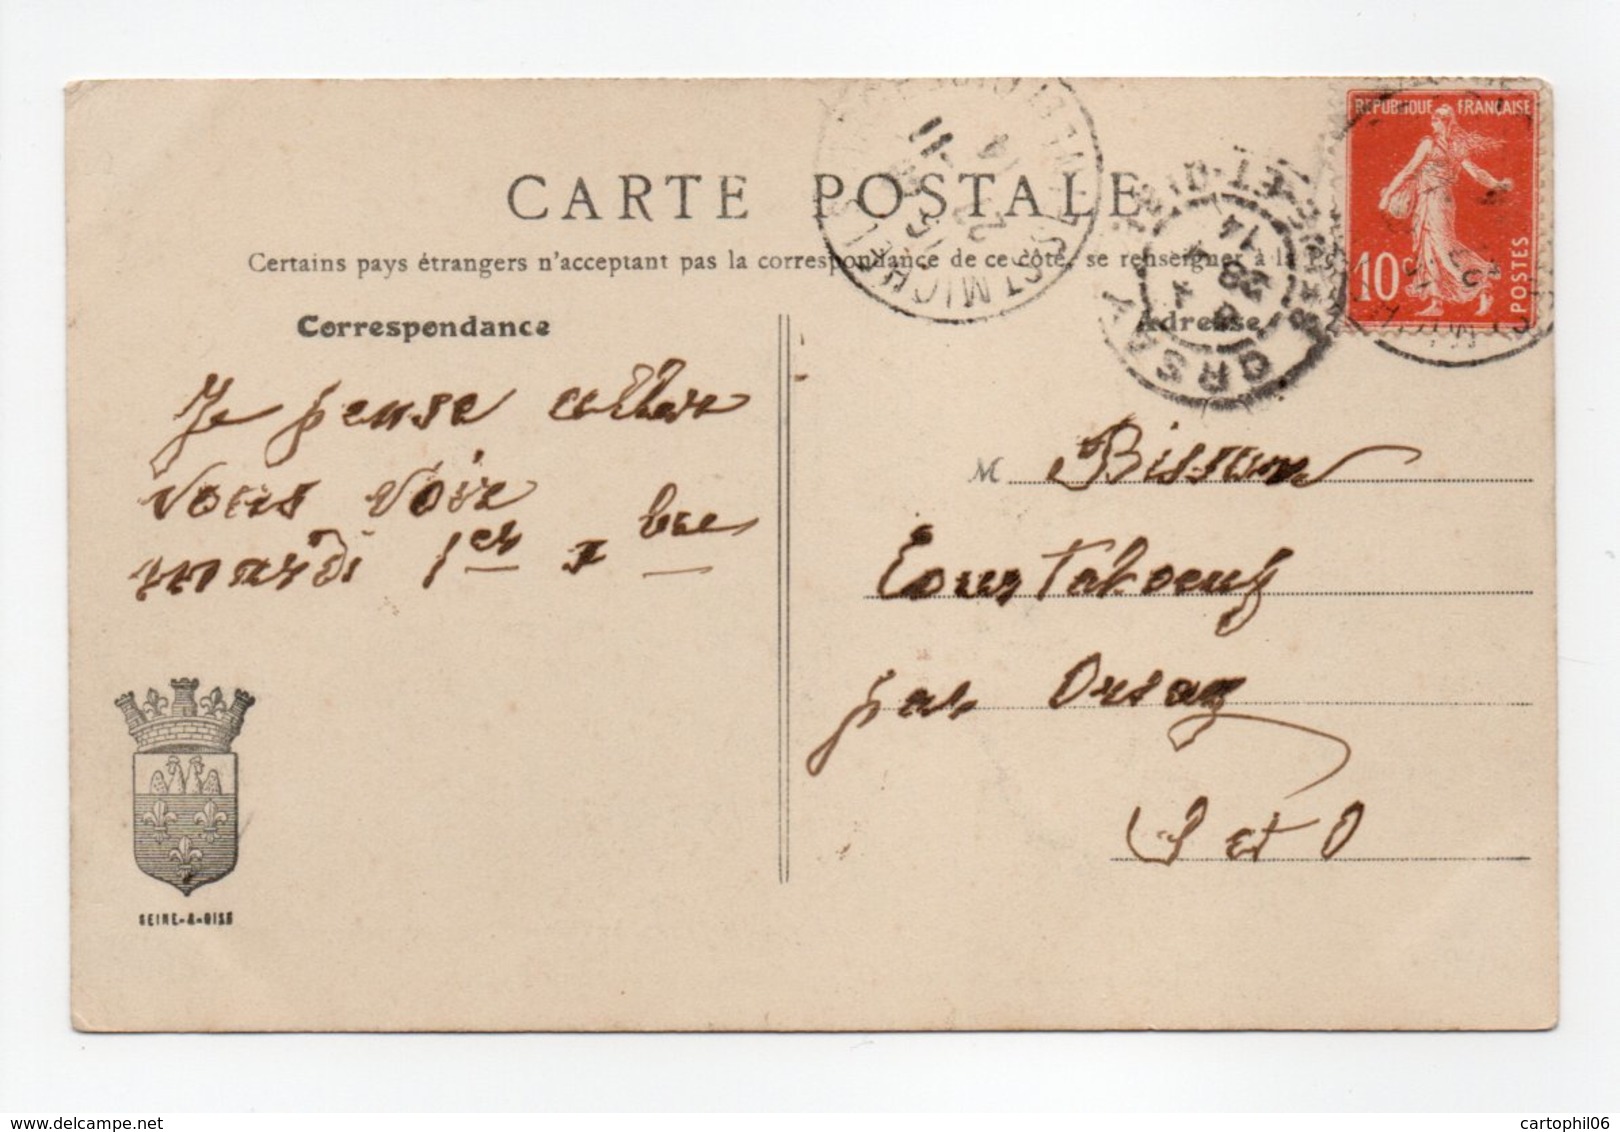 CARTE POSTALE
Certains pays étrangers n'acceptent pas la correspondance de ce côté, se renseigner à la
Correspondance
Adresse
Je pense aller
vous voir
mardi 1er xbre
M Bisson
Courtaboeuf
par Orsay
S et O
SEINE-&-OISE
REPUBLIQUE FRANÇAISE
10c
POSTES
ST MICHEL
ORSAY
SEINE-ET-OISE
cartophil06